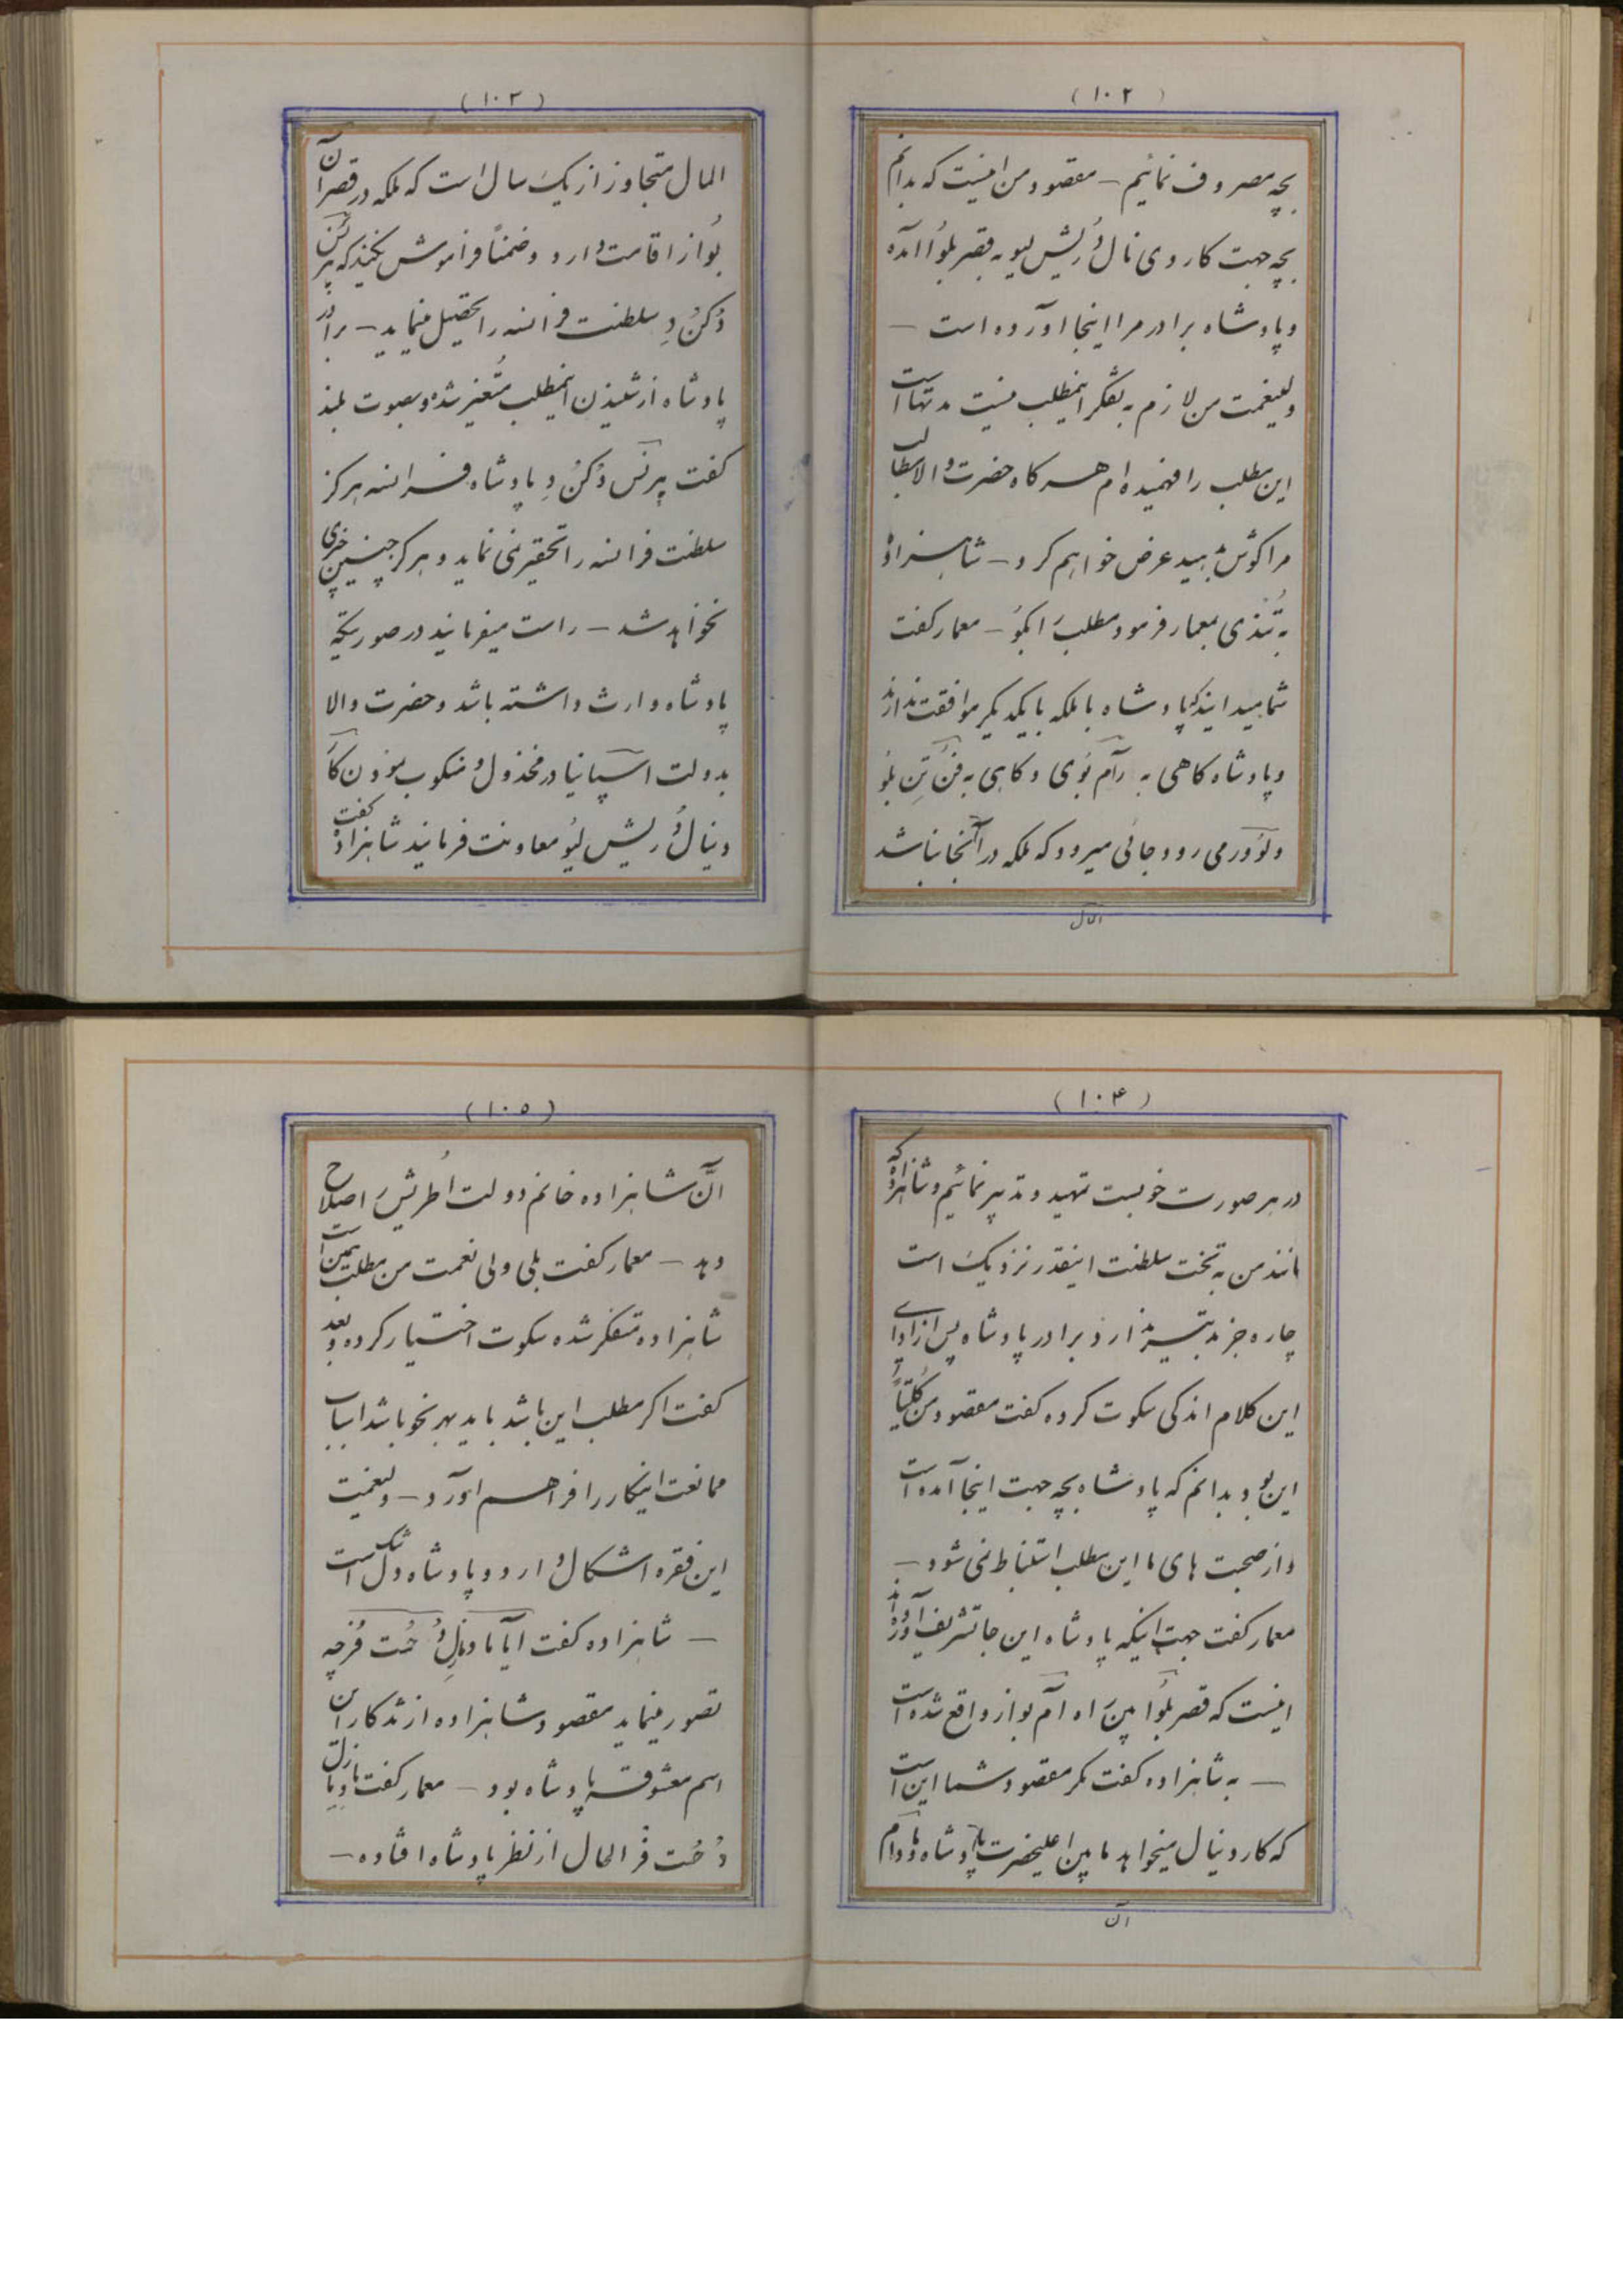 (۱۰۲)
بچه مصروف نمائیم – مقصود من اینست که بدانم
بچه جهت کاردی نال دُ ریش لیو به قصر بلوُا آمده
و پادشاه برادر مرا اینجا آورده است –
ولینعمت من لازم به تفکر اینمطلب نیست مدتهااست
این مطلب را فهمیده ام هر گاه حضرت والا مطالب
مرا گوش بدهید عرض خواهم کرد – شاهزاده
به تُندی بمعمار فرمود مطلب را بگوُ – معمار گفت
شما میدانید که پادشاه با ملکه با یکدیگر موافقت ندارند
و پادشاه گاهی به رآم بُوی و گاهی به فُن تِن بلوُ
و لوُور می رود و جائی میرود که ملکه در آنجا نباشد
الحال
(۱۰۳)
الحال متجاوز از یک سال است که ملکه در قصر آن
بُواز اقامت دارد و ضمناً فراموش نکنید که پرنس
دُکنُ دِ سلطنت فرانسه را تحقیر مینماید – برادر
پادشاه از شنیدن اینمطلب متُغیر شده و بصوت بلند
گفت پرنس دُکنُ دِ پادشاه فرانسه هرگز
سلطنت فرانسه را تحقیر نمی نماید و هرگز چنین چیزی
نخواهد شد – راست میفرمائید در صورتیکه
پادشاه وارث داشته باشد و حضرت والا
بدولت اسپانیا در مخذول و منکوب نمودن کا
ردینال دُ ریش لیوُ معاونت فرمائید شاهزاده گفت
(۱۰۴)
در هر صورت خوبست تمهید و تدبیر نمائیم و شاهزاده که
مانند من به تخت سلطنت اینقدر نزدیک است
چاره جز تدبیر ندارد برادر پادشاه پس از ادای
این کلام اندکی سکوت کرده گفت مقصود من کلُیتاً
این بود بدانم که پادشاه بچه جهت اینجا آمده است
و از صحبت های ما این مطلب استنباط نمی شود –
معمار گفت جهت اینکه پادشاه این جا تشریف آورده اند
اینست که قصر بلوُا مابین راه آم بواز واقع شده است
– به شاهزاده گفت مگر مقصود شما این است
که کاردینال میخواهد مابین اعلیحضرت پادشاه و مادام
آن
(۱۰۵)
آنَّ شاهزاده خانم دولت اُطریش را اصلاح
دهد – معمار گفت بلی ولی نعمت من مطلب همین است
شاهزاده متفکر شده سکوت اختیار کرده و بعد
گفت اگر مطلب این باشد باید بهر نحو باشد اسباب
ممانعت اینکار را فراهم آورد – ولینعمت
این فقره اشکال دارد و پادشاه دل تنگ است
– شاهزاده گفت آیا مادموازل دُ حُت فُرچه
تصور مینماید مقصود شاهزاده از تذکار این
اسم معشوقه پادشاه بود – معمار گفت مادموازل
دُ حُت فُر الحال از نظر پادشاه افتاده –